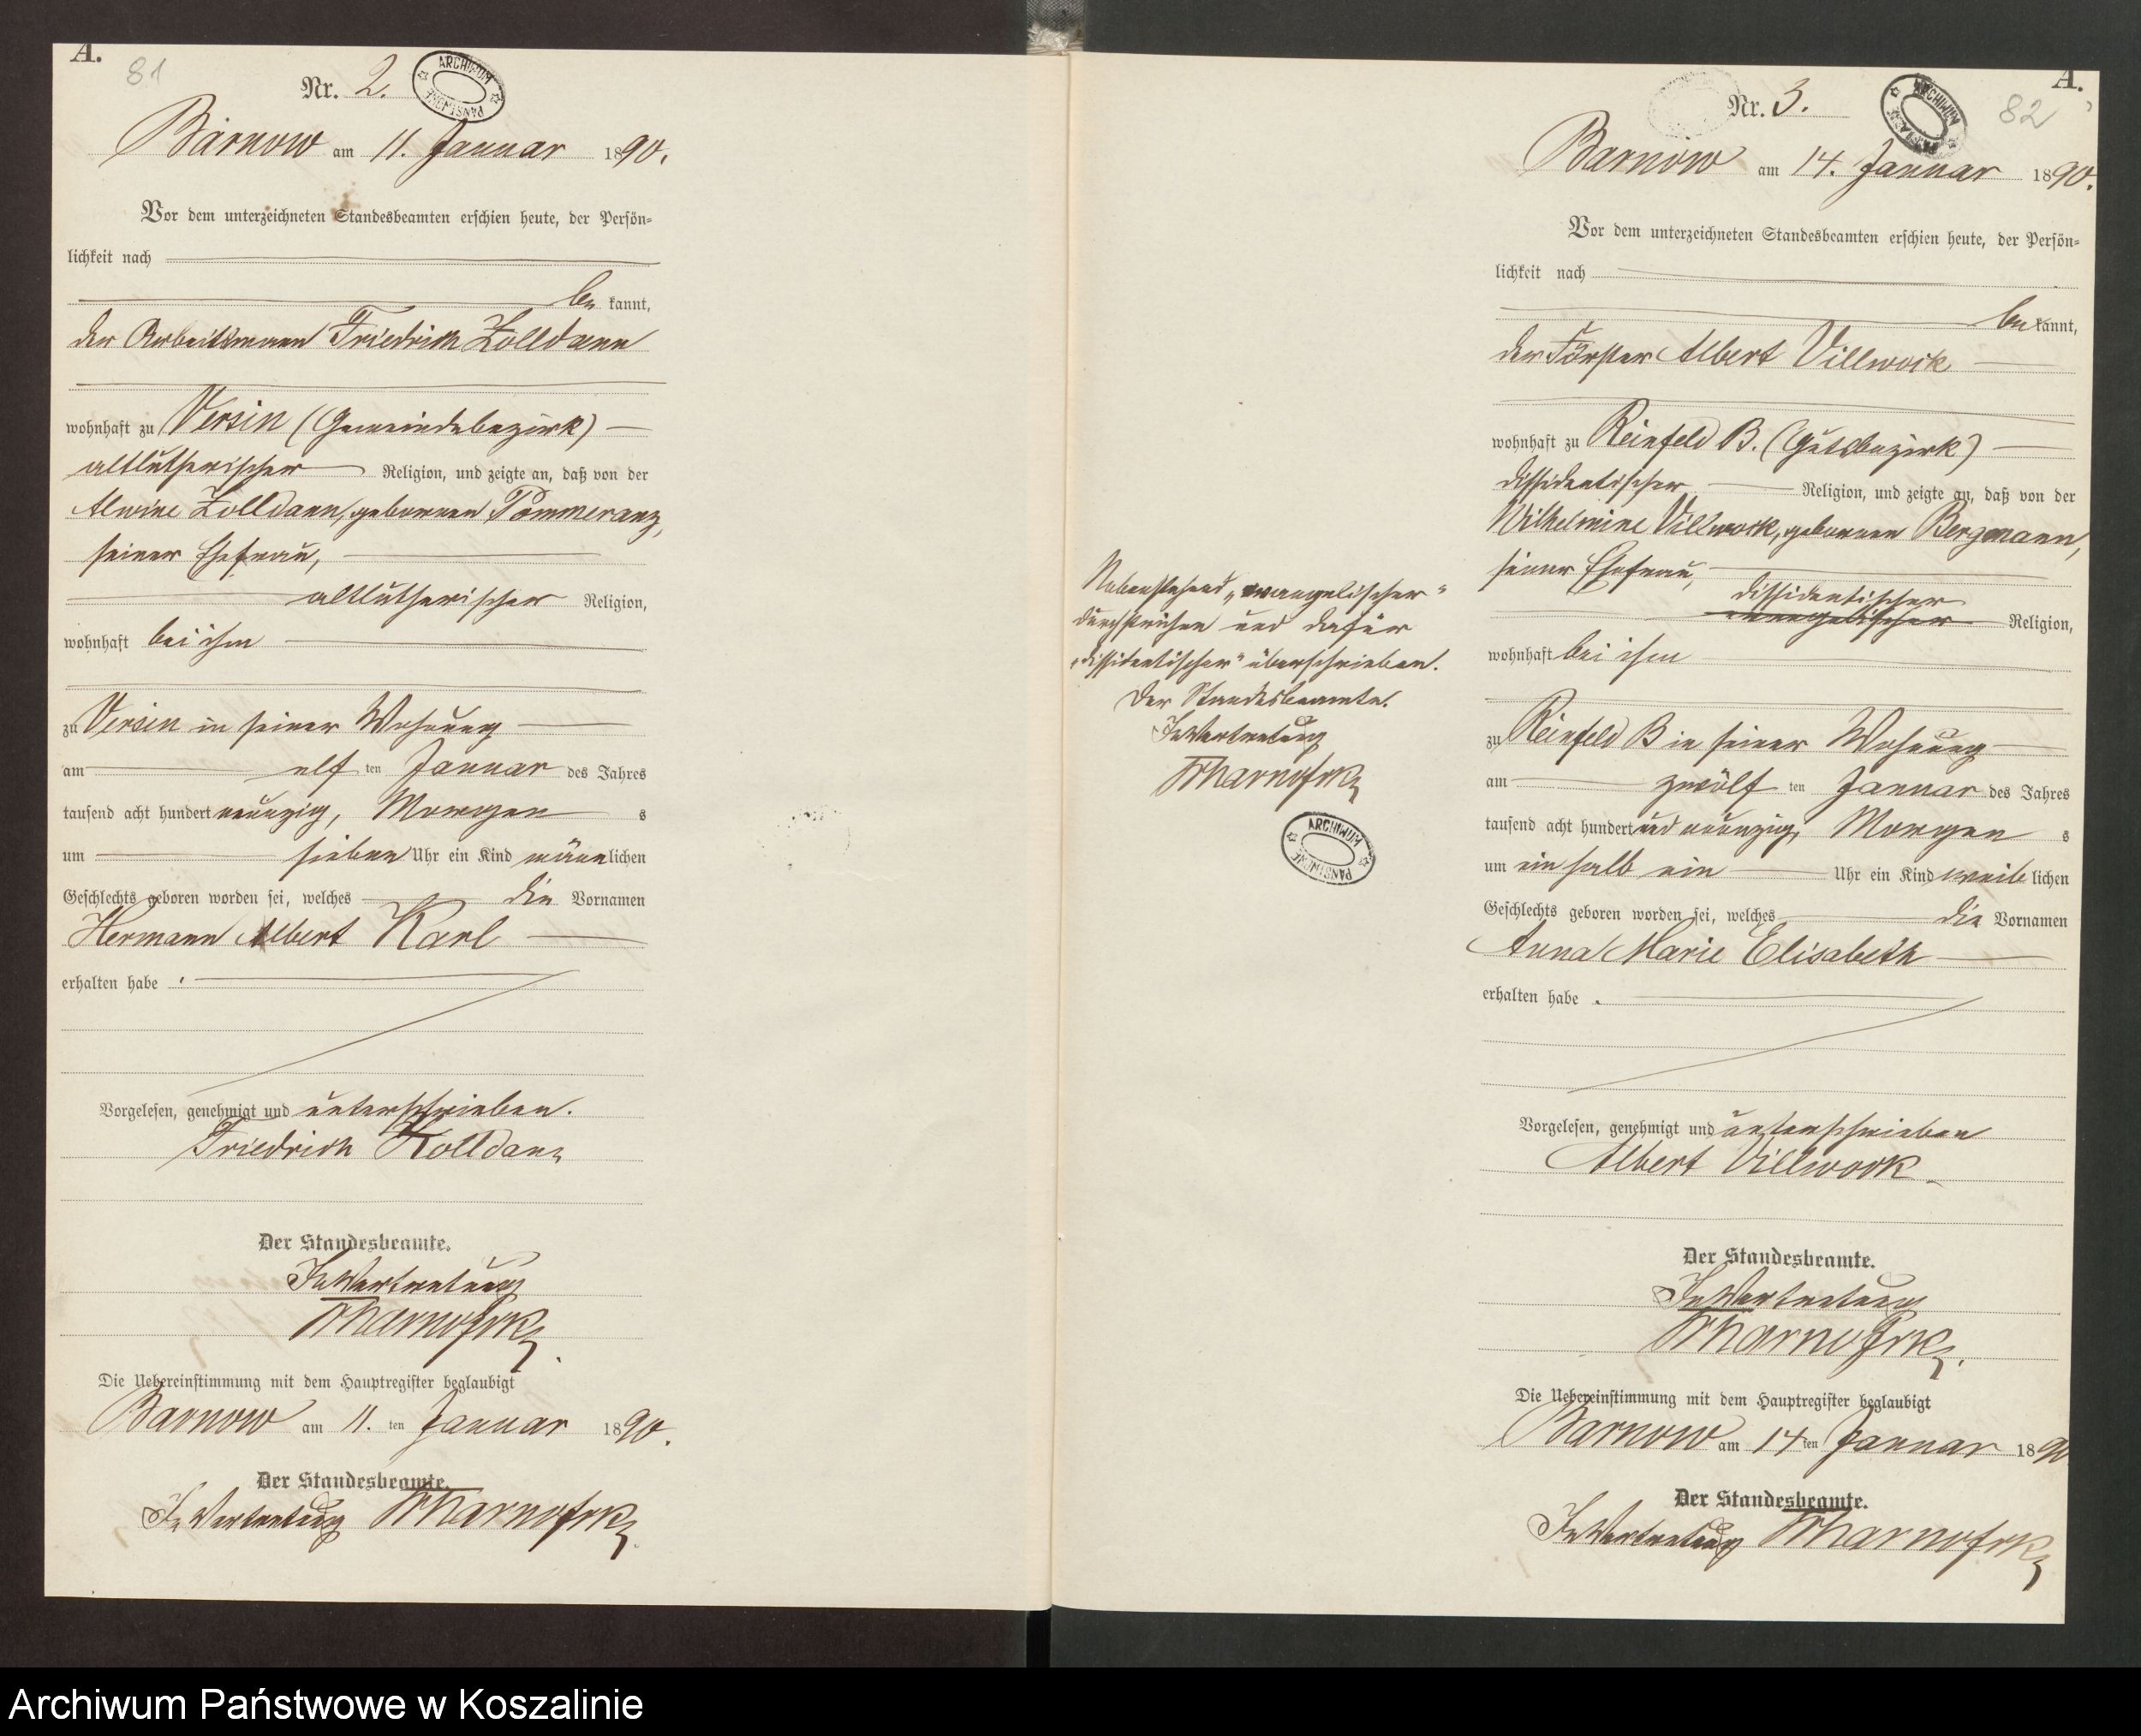 A.
81
Nr. 2.
ARCHIWUM PAŃSTWOWE
Barnow am 11. Januar 1890.
Vor dem unterzeichneten Standesbeamten erschien heute, der Persön-
lichkeit nach
be kannt,
der Arbeitsmann Friedrich Zolldann
wohnhaft zu Versin (Gemeindebezirk)
altlutherischer Religion, und zeigte an, daß von der
Alwine Zolldann, geborenen Pommeranz,
seiner Ehefrau,
altlutherischer Religion,
wohnhaft bei ihm
zu Versin in seiner Wohnung
am elf ten Januar des Jahres
tausend acht hundert neunzig, Morgen s
um sieben Uhr ein Kind männlichen
Geschlechts geboren worden sei, welches die Vornamen
Hermann Albert Karl
erhalten habe.
Vorgelesen, genehmigt und unterschrieben.
Friedrich Zolldann
Der Standesbeamte.
In Vertretung
Die Uebereinstimmung mit dem Hauptregister beglaubigt
Barnow am 11. ten Januar 1890.
Der Standesbeamte.
In Vertretung
Nebenstehend „evangelischer“
durchstrichen und dafür
„dissidentischer“ überschrieben.
Der Standesbeamte.
In Vertretung
ARCHIWUM PAŃSTWOWE
A.
82
Nr. 3.
ARCHIWUM PAŃSTWOWE
Barnow am 14. Januar 1890.
Vor dem unterzeichneten Standesbeamten erschien heute, der Persön-
lichkeit nach
be kannt,
der Förster Albert Villwock
wohnhaft zu Reinfeld B. (Gutsbezirk)
dissidentischer Religion, und zeigte an, daß von der
Wilhelmine Villwock, geborenen Bergmann,
seiner Ehefrau,
dissidentischer
evangelischer Religion,
wohnhaft bei ihm
zu Reinfeld B in seiner Wohnung
am zwölf ten Januar des Jahres
tausend acht hundert und neunzig, Morgen s
um ein halb ein Uhr ein Kind weib lichen
Geschlechts geboren worden sei, welches die Vornamen
Anna Marie Elisabeth
erhalten habe.
Vorgelesen, genehmigt und unterschrieben
Albert Villwock
Der Standesbeamte.
In Vertretung
Die Uebereinstimmung mit dem Hauptregister beglaubigt
Barnow am 14 ten Januar 1890
Der Standesbeamte.
In Vertretung
Archiwum Państwowe w Koszalinie